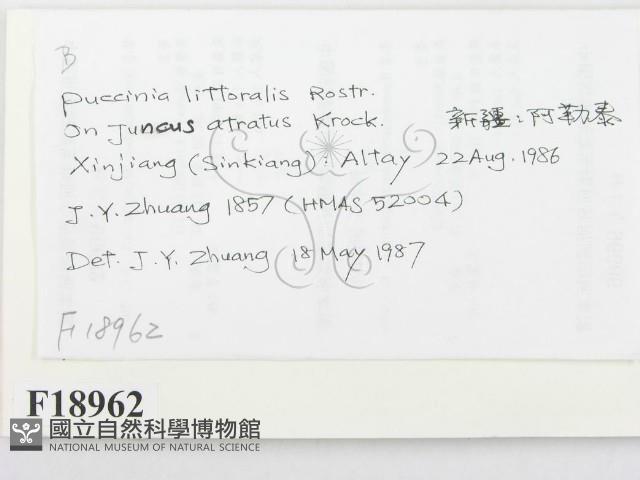 B
Puccinia littoralis Rostr.
On Juncus atratus Krock. 新疆:阿勒泰
Xinjiang (Sinkiang): Altay 22 Aug. 1986
J. Y. Zhuang 1857 (HMAS 52004)
Det. J. Y. Zhuang 18 May 1987
F18962
F18962
國立自然科學博物館
NATIONAL MUSEUM OF NATURAL SCIENCE